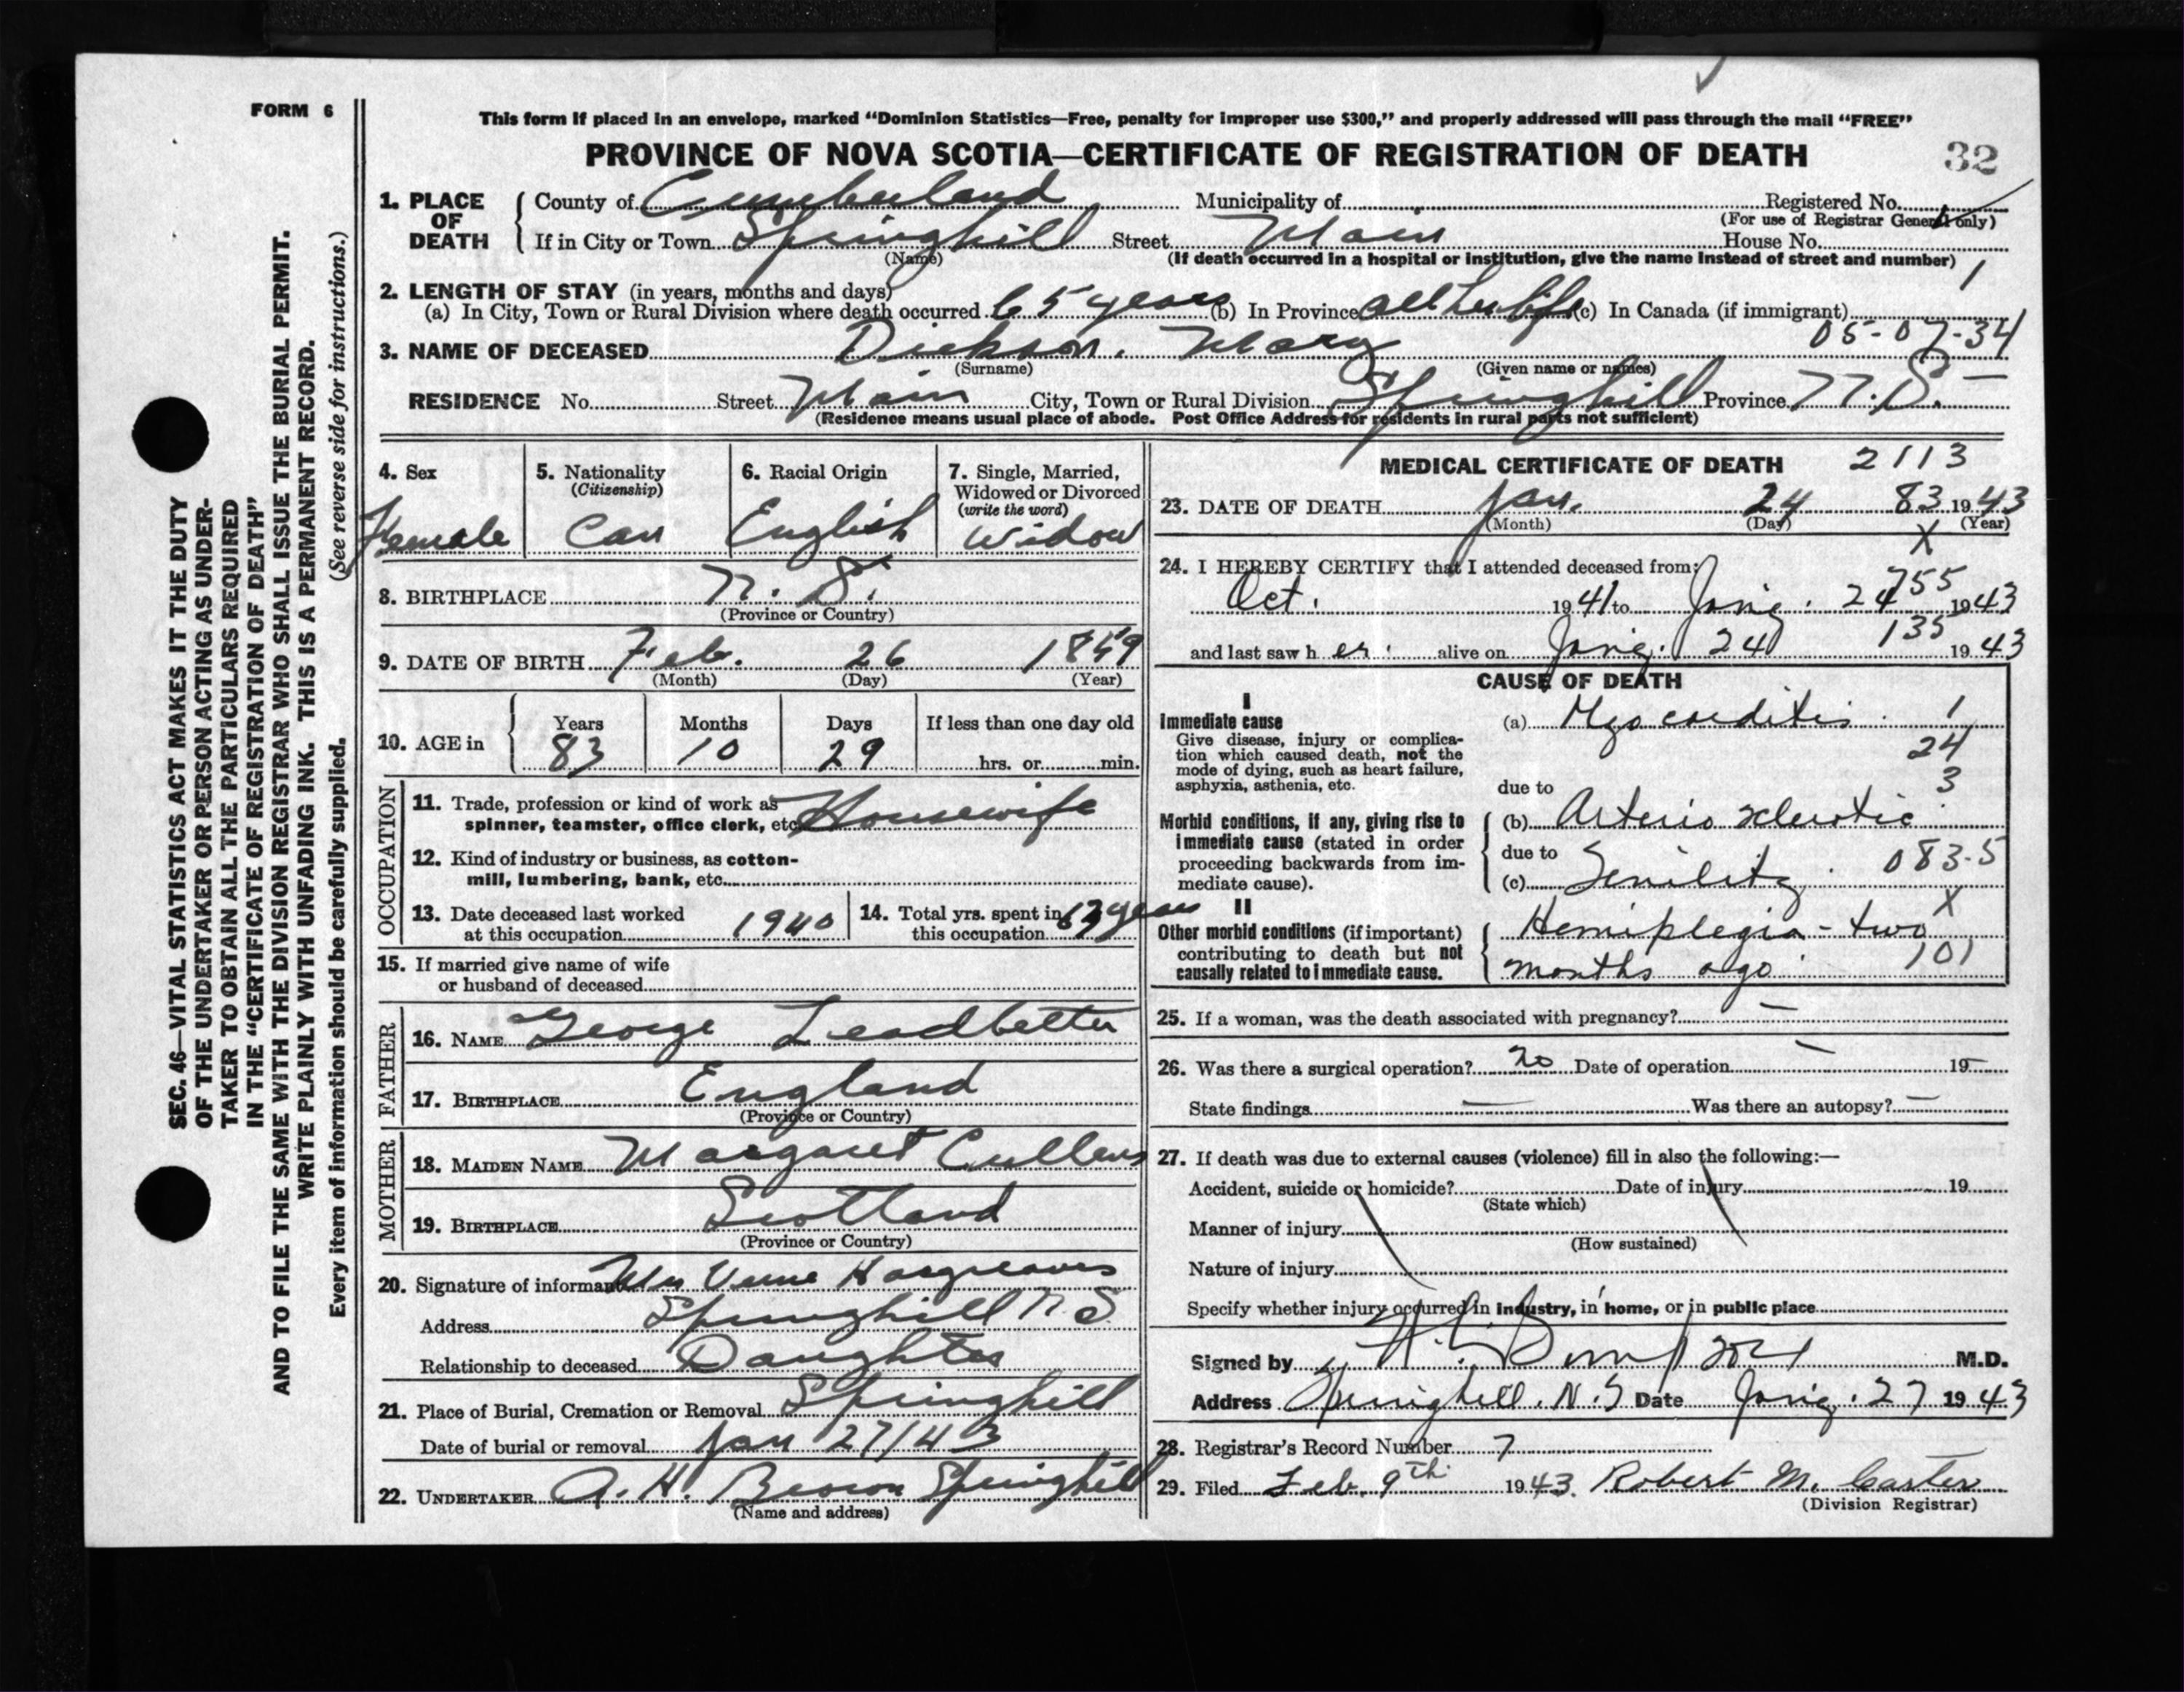 FORM 6
SEC. 46—VITAL STATISTICS ACT MAKES IT THE DUTY
OF THE UNDERTAKER OR PERSON ACTING AS UNDER-
TAKER TO OBTAIN ALL THE PARTICULARS REQUIRED
IN THE "CERTIFICATE OF REGISTRATION OF DEATH"
AND TO FILE THE SAME WITH THE DIVISION REGISTRAR WHO SHALL ISSUE THE BURIAL PERMIT.
WRITE PLAINLY WITH UNFADING INK. THIS IS A PERMANENT RECORD.
Every item of information should be carefully supplied. (See reverse side for instructions.)
This form if placed in an envelope, marked "Dominion Statistics—Free, penalty for improper use $300," and properly addressed will pass through the mail "FREE"
PROVINCE OF NOVA SCOTIA—CERTIFICATE OF REGISTRATION OF DEATH 32
1. PLACE OF DEATH County of Cumberland Municipality of Registered No.
(For use of Registrar General only)
If in City or Town Springhill Street Main House No.
(Name) (If death occurred in a hospital or institution, give the name instead of street and number) 1
2. LENGTH OF STAY (in years, months and days)
(a) In City, Town or Rural Division where death occurred 65 years (b) In Province all her life (c) In Canada (if immigrant)
05-07-34
3. NAME OF DECEASED Dickson. Mary
(Surname) (Given name or names)
RESIDENCE No. Street Main City, Town or Rural Division Springhill Province N.S.
(Residence means usual place of abode. Post Office Address for residents in rural parts not sufficient)
4. Sex Female
5. Nationality (Citizenship) Can
6. Racial Origin English
7. Single, Married, Widowed or Divorced (write the word) Widow
8. BIRTHPLACE N. S.
(Province or Country)
9. DATE OF BIRTH Feb. 26 1859
(Month) (Day) (Year)
10. AGE in Years 83 Months 10 Days 29 If less than one day old
hrs. or min.
OCCUPATION
11. Trade, profession or kind of work as Housewife
spinner, teamster, office clerk, etc.
12. Kind of industry or business, as cotton-
mill, lumbering, bank, etc.
13. Date deceased last worked at this occupation 1940
14. Total yrs. spent in this occupation years
15. If married give name of wife
or husband of deceased
FATHER
16. NAME George Leadbetter
17. BIRTHPLACE England
(Province or Country)
MOTHER
18. MAIDEN NAME Margaret Cullens
19. BIRTHPLACE Scotland
(Province or Country)
20. Signature of informant Mrs Verne Hargreaves
Address Springhill N.S.
Relationship to deceased Daughter
21. Place of Burial, Cremation or Removal Springhill
Date of burial or removal Jan 27/43
22. UNDERTAKER A. H. Brown Springhill
(Name and address)
MEDICAL CERTIFICATE OF DEATH 2113
23. DATE OF DEATH Jan. 24 83 1943
(Month) (Day) (Year)
X
24. I HEREBY CERTIFY that I attended deceased from:
755
Oct. 1941 to 24 1943
135
and last saw her alive on 24 1943
CAUSE OF DEATH
I
Immediate cause (a) Myocarditis 1
Give disease, injury or complica-
tion which caused death, not the
mode of dying, such as heart failure,
asphyxia, asthenia, etc.
24
3
due to
Morbid conditions, if any, giving rise to
immediate cause (stated in order
proceeding backwards from im-
mediate cause).
(b) Arterio sclerotic
due to
(c) Senility 083.5
X
II
Other morbid conditions (if important)
contributing to death but not
causally related to immediate cause.
Hemiplegia - two
months ago 101
25. If a woman, was the death associated with pregnancy? —
26. Was there a surgical operation? no Date of operation — 19—
State findings — Was there an autopsy? —
27. If death was due to external causes (violence) fill in also the following:—
Accident, suicide or homicide? Date of injury 19
(State which)
Manner of injury
(How sustained)
Nature of injury
Specify whether injury occurred in industry, in home, or in public place
Signed by M.D.
Address Springhill. N.S Date 27 1943
28. Registrar's Record Number 7
29. Filed Feb. 9th 1943. Robert M. Carter
(Division Registrar)